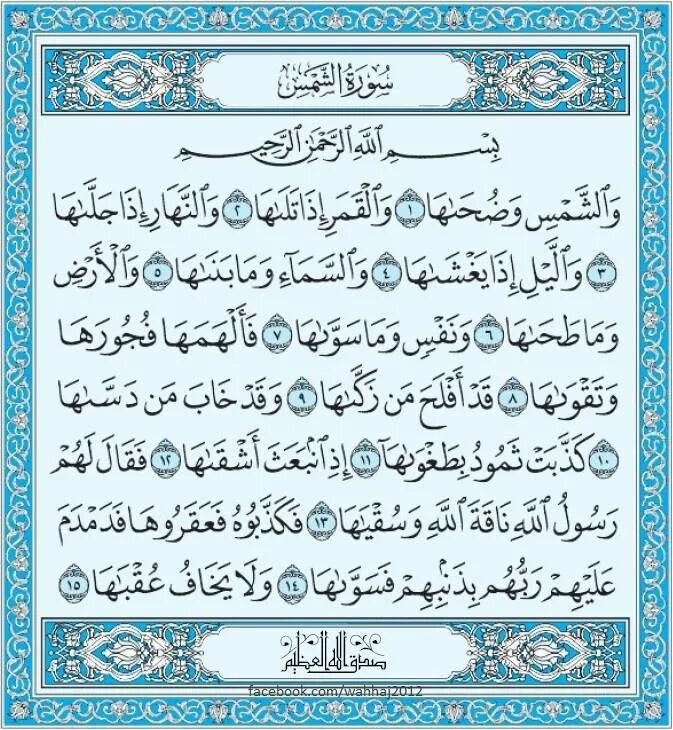 سُورَةُ الشَّمْسِ
بِسْمِ ٱللَّهِ ٱلرَّحْمَٰنِ ٱلرَّحِيمِ
وَٱلشَّمْسِ وَضُحَىٰهَا ١ وَٱلْقَمَرِ إِذَا تَلَىٰهَا ٢ وَٱلنَّهَارِ إِذَا جَلَّىٰهَا
٣ وَٱلَّيْلِ إِذَا يَغْشَىٰهَا ٤ وَٱلسَّمَآءِ وَمَا بَنَىٰهَا ٥ وَٱلْأَرْضِ
وَمَا طَحَىٰهَا ٦ وَنَفْسٍ وَمَا سَوَّىٰهَا ٧ فَأَلْهَمَهَا فُجُورَهَا
وَتَقْوَىٰهَا ٨ قَدْ أَفْلَحَ مَن زَكَّىٰهَا ٩ وَقَدْ خَابَ مَن دَسَّىٰهَا
١٠ كَذَّبَتْ ثَمُودُ بِطَغْوَىٰهَآ ١١ إِذِ ٱنۢبَعَثَ أَشْقَىٰهَا ١٢ فَقَالَ لَهُمْ
رَسُولُ ٱللَّهِ نَاقَةَ ٱللَّهِ وَسُقْيَٰهَا ١٣ فَكَذَّبُوهُ فَعَقَرُوهَا فَدَمْدَمَ
عَلَيْهِمْ رَبُّهُم بِذَنۢبِهِمْ فَسَوَّىٰهَا ١٤ وَلَا يَخَافُ عُقْبَٰهَا ١٥
صدق الله العظيم
facebook.com/wahhaj2012